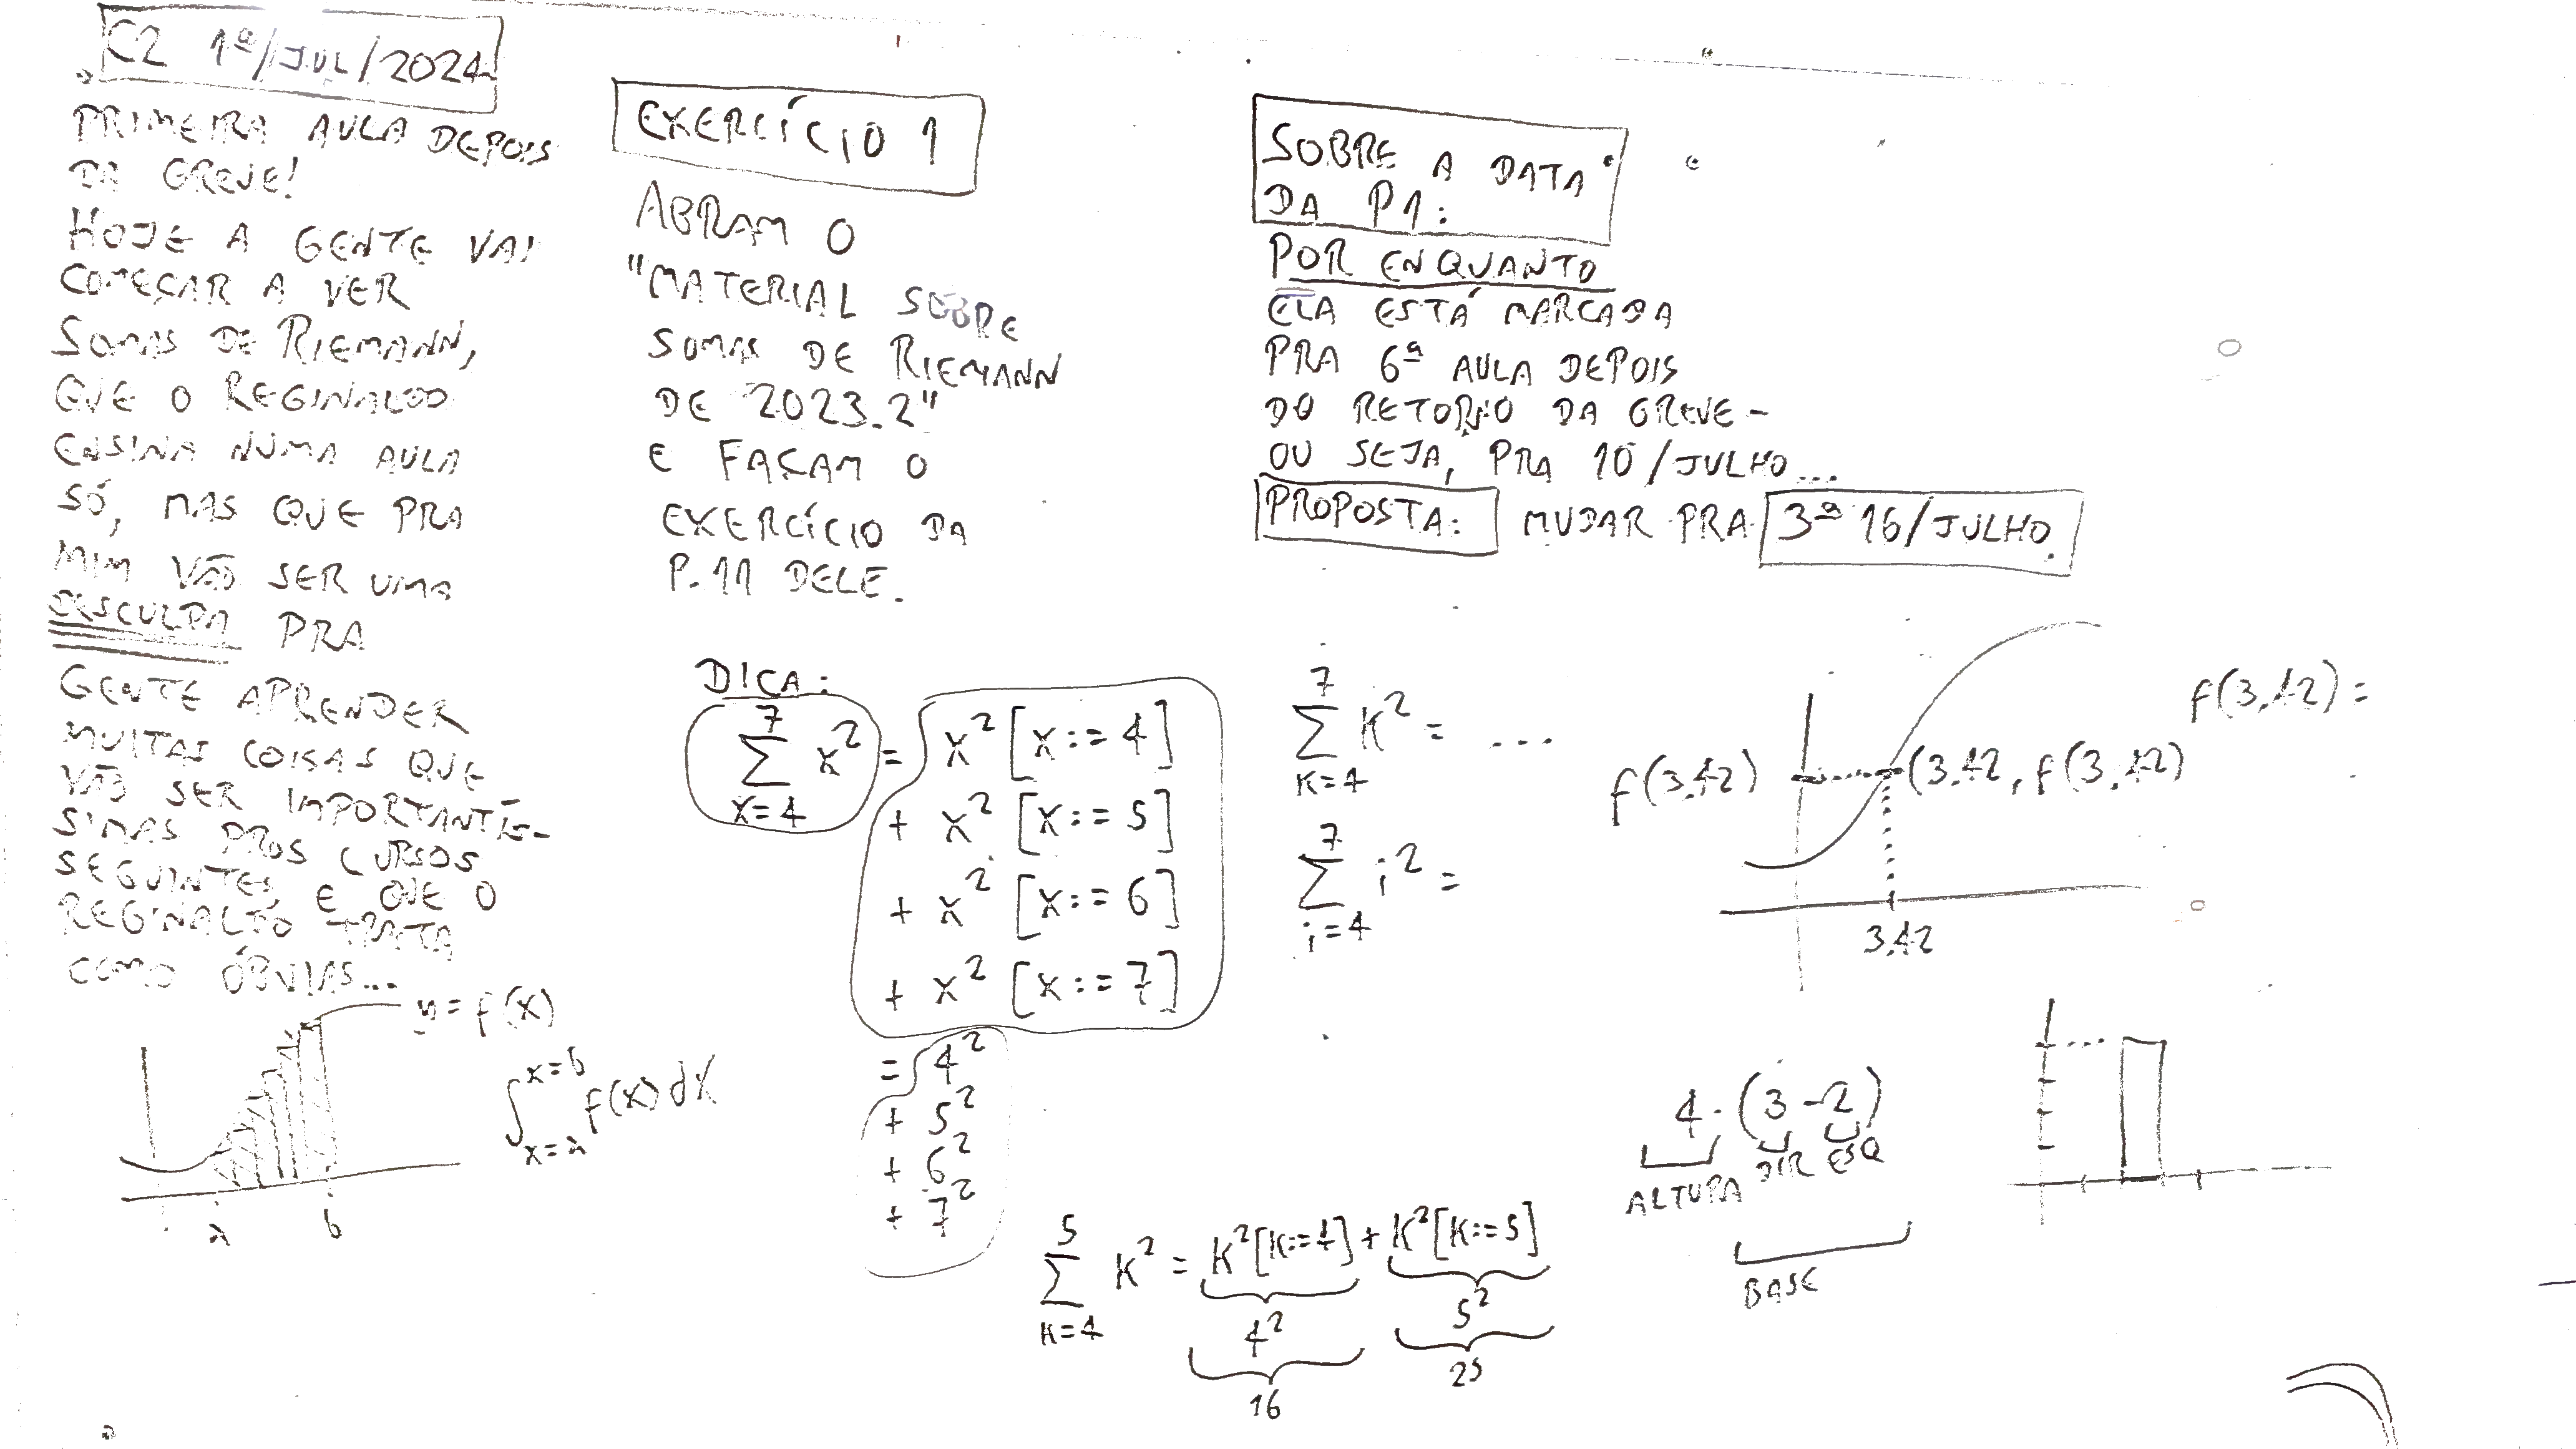 C2 1º/JUL/2024
PRIMEIRA AULA DEPOIS
DA GREVE!
HOJE A GENTE VAI
COMEÇAR A VER
SOMAS DE RIEMANN,
QUE O REGINALDO
ENSINA NUMA AULA
SÓ, MAS QUE PRA
MIM VÃO SER UMA
DESCULPA PRA
GENTE APRENDER
MUITAS COISAS QUE
VÃO SER IMPORTANTÍS-
SIMAS PROS CURSOS
SEGUINTES E QUE O
REGINALDO TRATA
COMO ÓBVIAS...
y = f(x)
a b
∫_{x=a}^{x=b} f(x) dx
EXERCÍCIO 1
ABRAM O
"MATERIAL SOBRE
SOMAS DE RIEMANN
DE 2023.2"
E FAÇAM O
EXERCÍCIO DA
P.11 DELE.
DICA:
∑_{x=4}^{7} x² = x² [x:=4]
+ x² [x:=5]
+ x² [x:=6]
+ x² [x:=7]
= 4²
+ 5²
+ 6²
+ 7²
∑_{k=4}^{5} k² = k²[k:=4] + k²[k:=5]
4² 5²
16 25
SOBRE A DATA
DA P1:
POR ENQUANTO
ELA ESTÁ MARCADA
PRA 6ª AULA DEPOIS
DO RETORNO DA GREVE -
OU SEJA, PRA 10/JULHO...
PROPOSTA: MUDAR PRA 3ª 16/JULHO.
∑_{k=4}^{7} k² = ...
∑_{i=4}^{7} i² =
f(3.42) (3.42, f(3.42)
3.42
f(3.42) =
4·(3-2)
ALTURA DIR ESQ
BASE